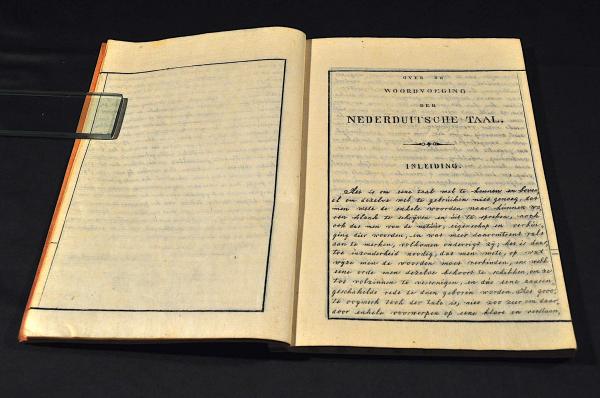 OVER DE
WOORDVOEGING
DER
NEDERDUITSCHE TAAL.
INLEIDING.
Het is om eene taal wel te kennen en
el om dezelve wel te gebruiken niet genoeg, dat
men wete de enkele woorden naar hunnen
ren klank te schrijven en uit te spreken, noch
ook dat men van de natuur, eigenschap en verbui,
ging dier woorden, en wat meer daaromtrent valt
aan te merken, volkomen onderrigt zij; het is daar,
toe inzonderheid noodig, dat men wete, op wat
wijze men de woorden moet verbinden, en welk
eene orde men dezelve behoort te schikken, om ze
tot volzinnen te vereenigen, en dus eene
geschakelde rede te doen geboren worden. Het groo,
te oogmerk toch der tale is, niet zoo zeer om daar,
door enkele voorwerpen op eene klare en